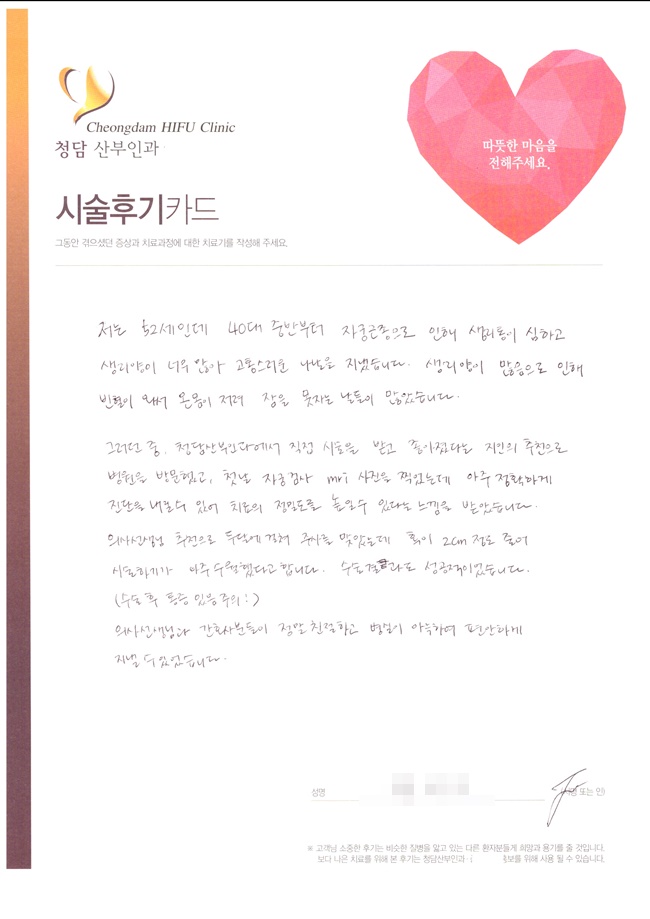 Cheongdam HIFU Clinic
청담 산부인과
따뜻한 마음을
전해주세요.
시술후기카드
그동안 겪으셨던 증상과 치료과정에 대한 치료기를 작성해 주세요.
저는 52세인데 40대 중반부터 자궁근종으로 인해 생리통이 심하고
생리양이 너무 많아 고통스러운 나날을 지냈습니다. 생리양이 많음으로 인해
빈혈이 와서 온몸이 저려 잠을 못자는 날들이 많았습니다.
그러던 중, 청담산부인과에서 직접 시술을 받고 좋아졌다는 지인의 추천으로
병원을 방문했고, 첫날 자궁검사 mri 사진을 찍었는데 아주 정확하게
진단을 내릴수 있어 치료의 정밀도를 높일수 있다는 느낌을 받았습니다.
의사선생님 추천으로 두달에 걸쳐 주사를 맞았는데 혹이 2cm 정도 줄어
시술하기가 아주 수월했다고 합니다. 수술결과도 성공적이었습니다.
(수술 후 통증 있음 주의:)
의사선생님과 간호사분들이 정말 친절하고 병실이 아늑하여 편안하게
지낼 수 있었습니다.
성명
또는 인)
※ 고객님 소중한 후기는 비슷한 질병을 앓고 있는 다른 환자분들게 희망과 용기를 줄 것입니다.
보다 나은 치료를 위해 본 후기는 청담산부인과 홍보를 위해 사용 될 수 있습니다.